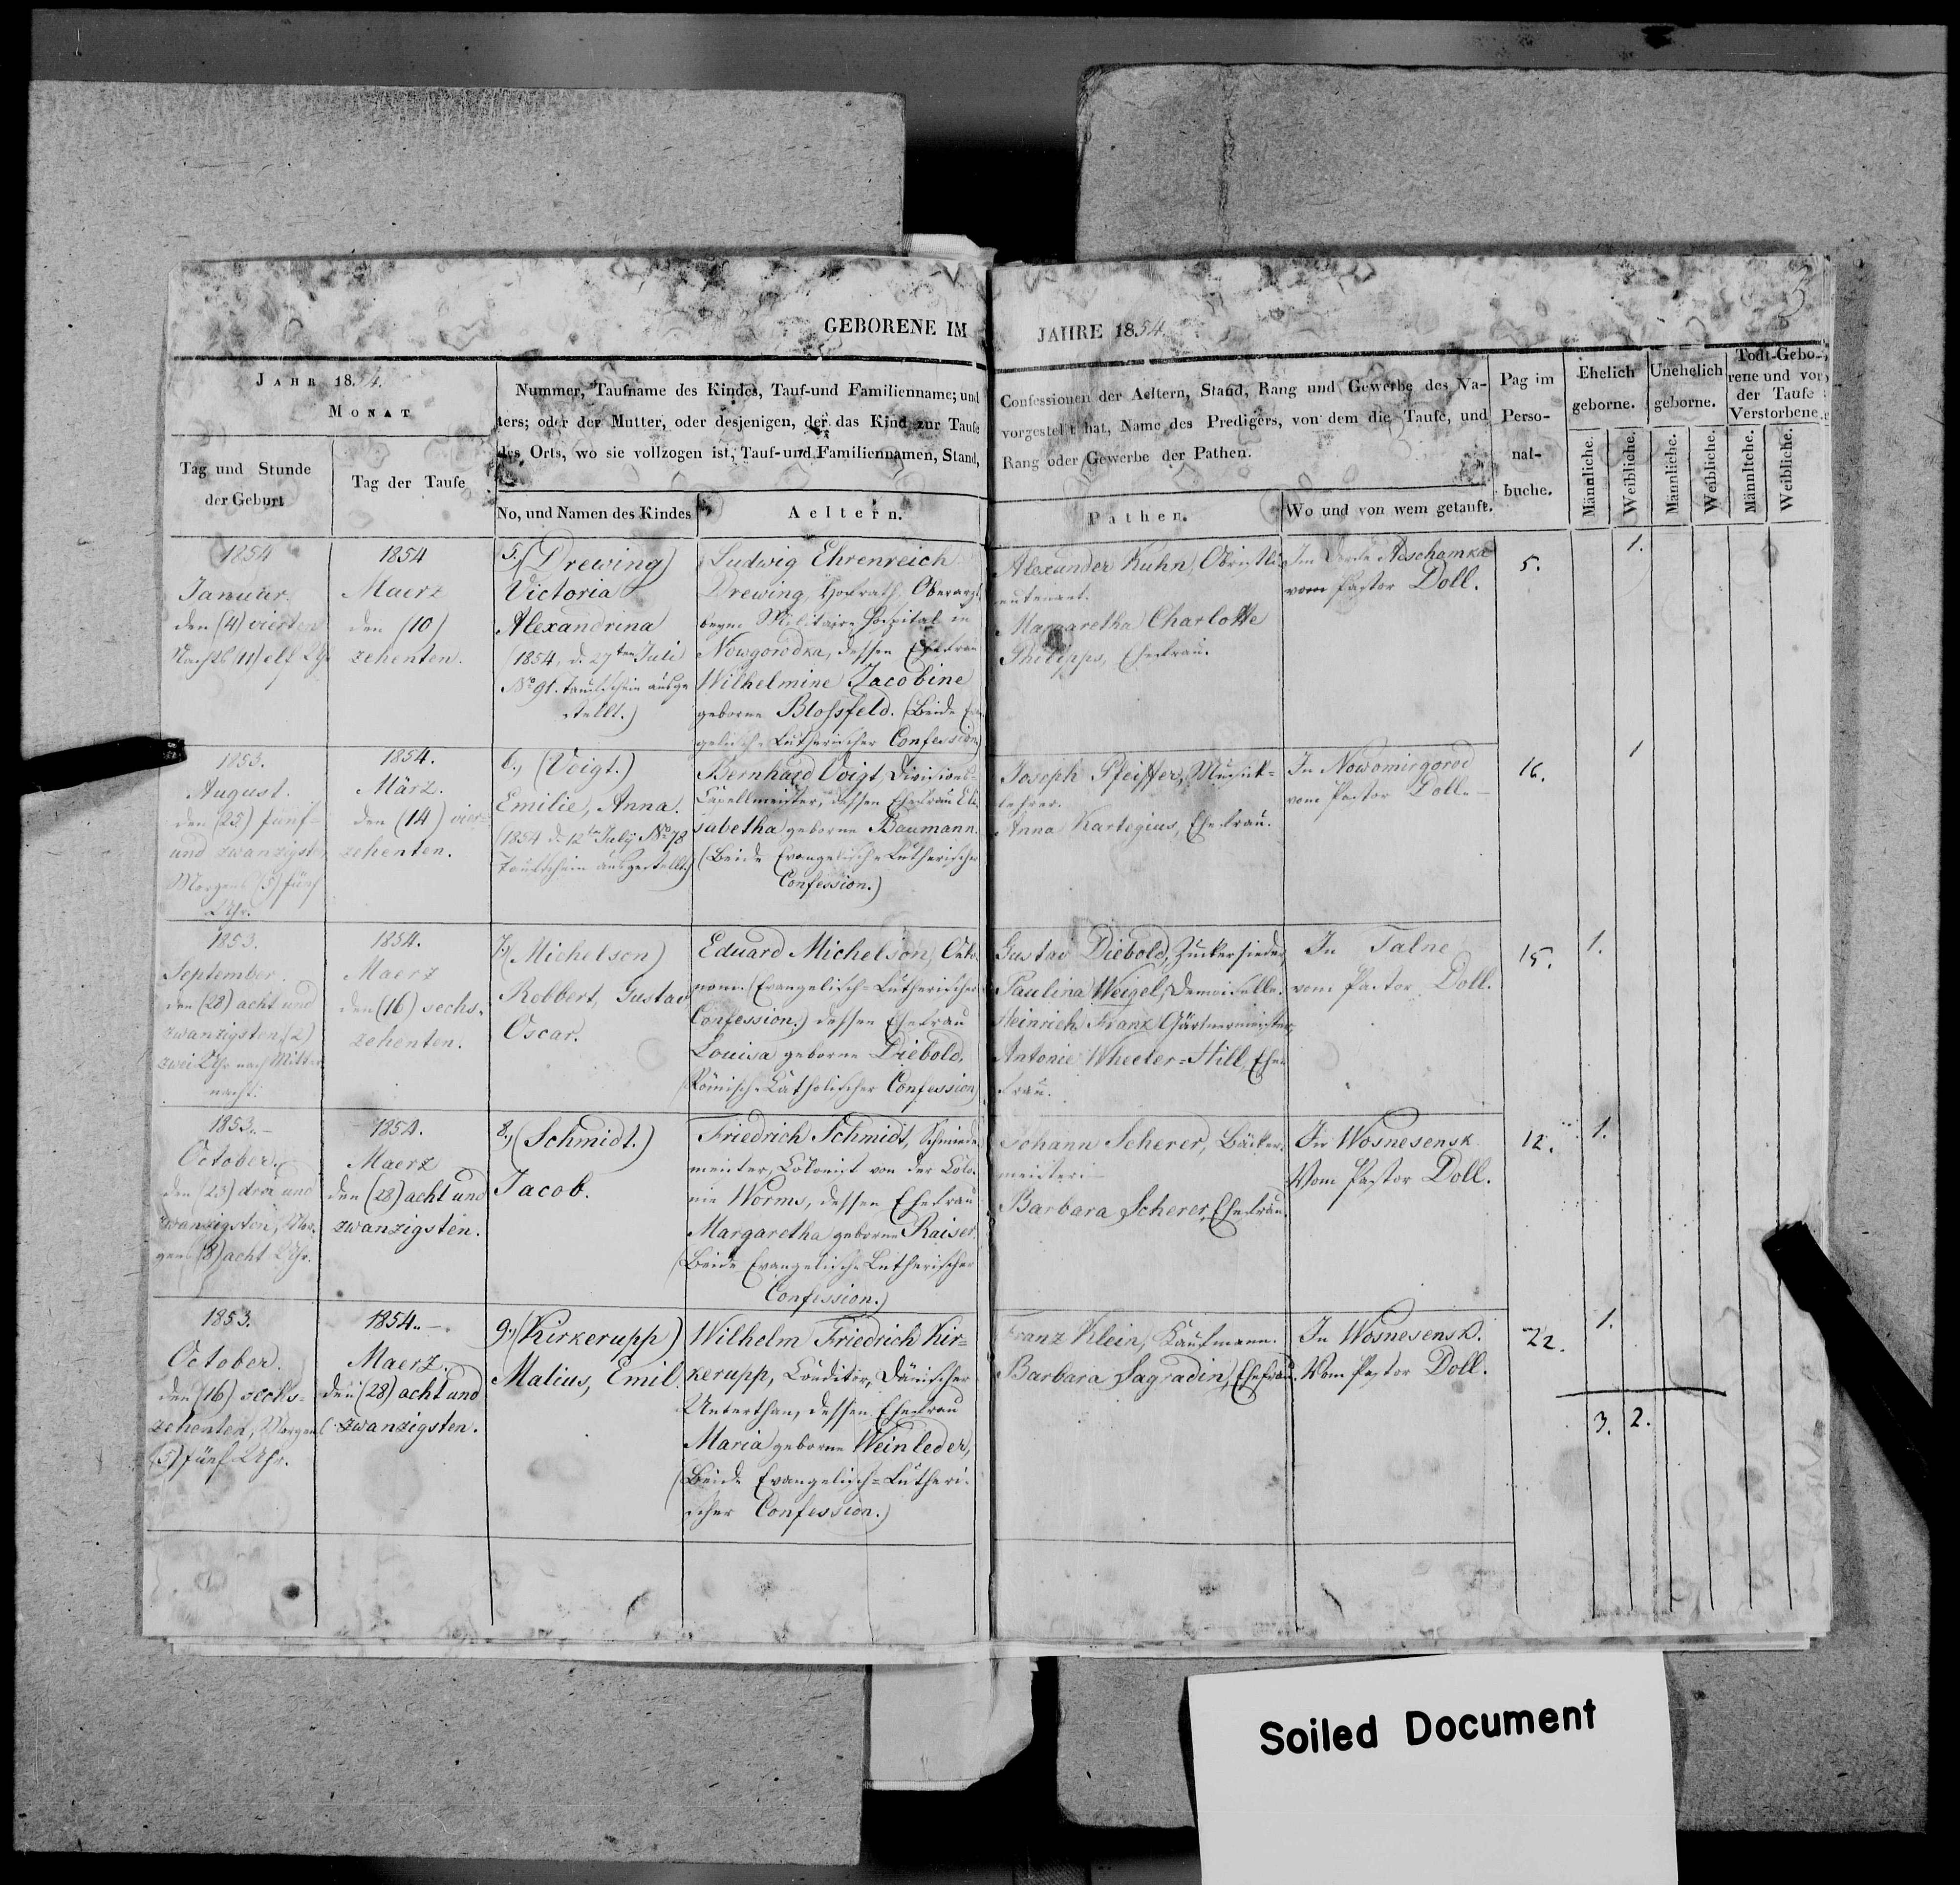 3
GEBORENE IM JAHRE 1854.
JAHR 1854.
MONAT
Tag und Stunde
der Geburt
Tag der Taufe
Nummer, Taufname des Kindes, Tauf-und Familienname; und
ters; oder der Mutter, oder desjenigen, der das Kind zur Taufe
des Orts, wo sie vollzogen ist, Tauf-und Familiennamen, Stand,
No, und Namen des Kindes
Aeltern.
Confessionen der Aeltern, Stand, Rang und Gewerbe des Va-
vorgestellt hat, Name des Predigers, von dem die Taufe, und
Rang oder Gewerbe der Pathen.
Pathen.
Wo und von wem getauft.
Pag im
Perso-
nal-
buche.
Ehelich
geborne.
Unehelich
geborne.
Todt-Gebo-
rene und vor
der Taufe
Verstorbene
Männliche.
Weibliche.
Männliche.
Weibliche.
Männliche.
Weibliche.
1854
Januar.
den (4) vierten
Nachts (11) elf Uhr
1854
Maerz
den (10)
zehenten.
5.) (Drewing)
Victoria
Alexandrina
(1854, d. 27ten Juli
No 91. Taufschein ausge
stellt.)
Ludwig Ehrenreich
Drewing, Hofrath, Oberarzt
beym Militaire Hospital in
Nowgorodka, dessen Ehefrau
Wilhelmine Jacobine
geborne Blossfeld. (Beide Evan
gelisch-Lutherischer Confession)
Alexander Kuhn, Obristli
eutenant.
Margaretha Charlotte
Philipps, Ehefrau.
Im Dorfe
vom Pastor Doll.
5.
1.
1853.
August.
den (25) fünf-
und zwanzigsten
Morgens (5) fünf
Uhr.
1854.
März.
den (14) vier-
zehenten.
6., (Voigt.)
Emilie, Anna.
(1854 d. 12ten July No 78
Taufschein ausgestellt.)
Bernhard Voigt, Divisions-
Capellmeister, dessen Ehefrau Eli-
sabetha geborne Baumann.
(Beide Evangelisch-Lutherischer
Confession.)
Joseph Pfeiffer, Musick-
lehrer.
Anna Kartegius, Ehefrau.
In Nowomirgorod
vom Pastor Doll.-
16.
1
1853.
September.
den (28) acht und
zwanzigsten, (2)
zwei Uhr nach Mitter
nacht.
1854.
Maerz
den (16) sechs-
zehenten.
7.) (Michelson)
Robbert, Gustav
Oscar.
Eduard Michelson, Oeko-
nom. (Evangelisch-Lutherischer
Confession.) dessen Ehefrau
Louisa geborne Diebold.
(Römisch-Katholischer Confession)
Gustav Diebold, Zuckersieder,
Paulina Weigel, Demoiselle.
Heinrich Franz Gärtnermeister,
Antonie Wheeler-Hill, Ehe-
frau.
In Talne
vom Pastor Doll.
15.
1.
1853.-
October.
den (23) drei und
zwanzigsten, Mor-
gens (8) acht Uhr.
1854.
Maerz
den (28) acht und
zwanzigsten.
8., (Schmidt.)
Jacob.
Friedrich Schmidt, Schmiede
meister, Colonist von der Colo-
nie Worms, dessen Ehefrau
Margaretha geborne Kaiser.
(Beide Evangelisch-Lutherischer
Confession.)
Johann Scherer, Bäcker-
meister.-
Barbara Scherer, Ehefrau.
In Wosnesensk
Vom Pastor Doll.
12.
1.
1853.
October.
den (16) sechs-
zehenten, Morgens
(5) fünf Uhr.
1854.-
Maerz.
den (28) acht und
zwanzigsten.
9., (Kirkerupp)
Malius, Emil.
Wilhelm Friedrich Kir-
kerupp, Conditer, Dänischer
Unterthan, dessen Ehefrau
Maria geborne Weinleder,
(Beide Evangelisch-Lutheri-
scher Confession.)
Franz Klein, Kaufmann.
Barbara Sagradin, Ehefrau.
In Wosnesensk.
Vom Pastor Doll.
22.
1.
3. 2.
Soiled Document